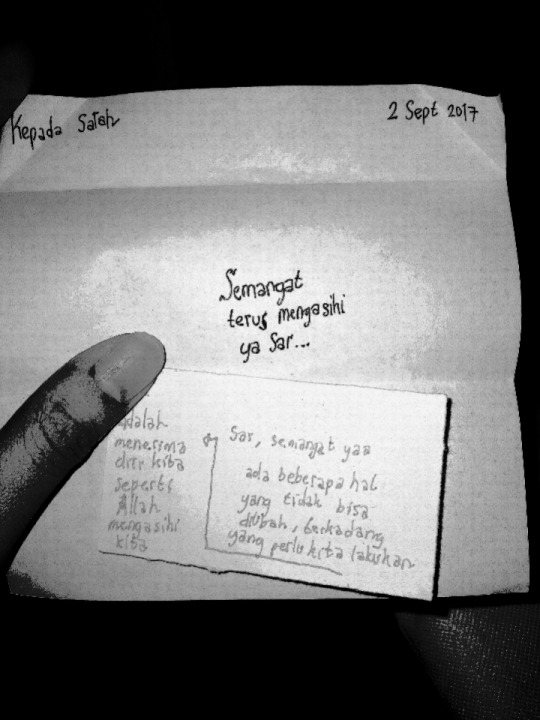 Kepada Sarah
2 Sept 2017
Semangat
terus mengasihi
ya Sar...
Sar, semangat yaa
ada beberapa hal
yang tidak bisa
diubah, terkadang
yang perlu kita lakukan
adalah
menerima
diri kita
seperti
Allah
mengasihi
kita